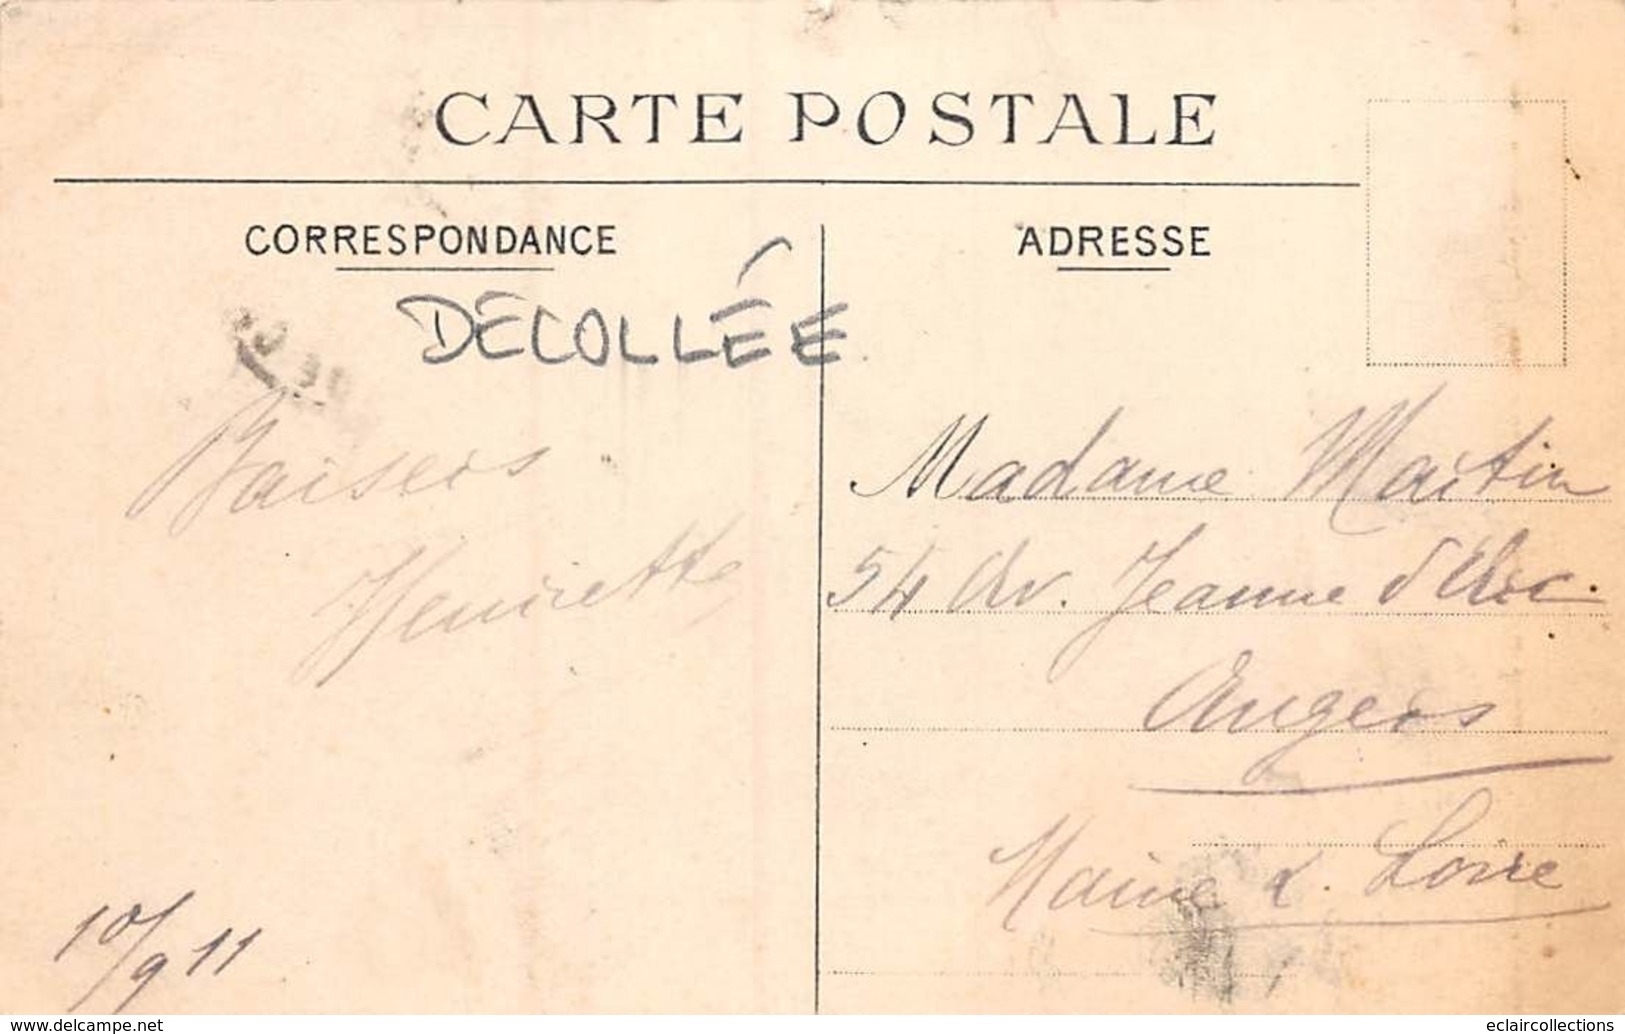 CARTE POSTALE
CORRESPONDANCE
ADRESSE
DÉCOLLÉE
Baisers
Henriette
10/9 11
Madame Martin
54 Av. Jeanne d'Arc.
Angers
Maine & Loire
www.delcampe.net
eclaircollections